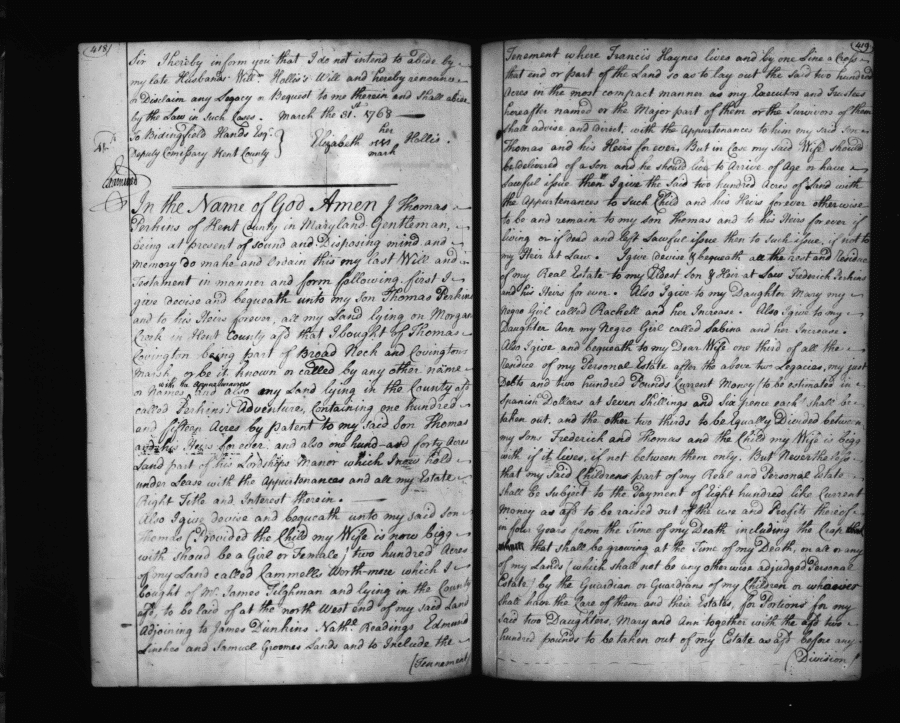 418
Sir I hereby inform you that I do not intend to abide by
my late Husbands Willm. Hollis's Will and hereby renounce
& Disclaim any Legacy or Bequest to me therein and Shall abide
by the Law in Such Cases. March the 31.st 1768
To Bidingfield Hands Esqr. her
Deputy Comissary Kent County } Elizabeth Hollis.
mark
Examined
In the Name of God Amen I Thomas
Perkins of Kent County in Maryland Gentleman,
being at present of Sound and Disposing mind and
Memory do make and Ordain this my last Will and
Testament in manner and form following. first I
give devise and bequeath unto my Son Thomas Perkins
and to his Heirs forever, all my Land lying on Morgans
Creek in Kent County afd. that I bought of Thomas
Covington being part of Broad Neck and Covingtons
Marsh, or be it known or called by any other name
or Names, with the Appurtenances and also my Land lying in the County afd.
called Perkins's Adventure, Containing one hundred
and fifteen Acres by patent to my said Son Thomas
and his Heirs for ever, and also one hund and forty Acres
Land part of his Lordships Manor which I now hold
under Lease with the Appurtenances and all my Estate
Right Title and Interest therein.
Also I give devise and bequeath unto my said Son
Thomas (Provided the Child my Wife is now bigg
with should be a Girl or Female) two hundred Acres
of my Land called Cammells Worth-more which I
bought of Mr. James Tilghman and lying in the County
afd. to be laid of at the north West end of my said Land
Adjoining to James Dunkins Nathl. Readings Edmund
Linches and Samuel Groomes Lands and to Include the
(Tennement
419
Tenement where Francis Haynes lives and by one Line a Cross
that end or part of the Land So as to lay out the Said two hundred
Acres in the most compact manner as my Executors and Trustees
hereafter named or the Major part of them or the Survivors of them
Shall advise and Direct, with the Appurtenances to him my said Son
Thomas and his Heirs for ever. But in Case my said Wife Should
be delivered of a Son and he should live to Arrive of Age or have
Lawful issue then I give the Said two hundred Acres of Land with
the Appurtenances to Such Child and his Heirs for ever otherwise
to be and remain to my Son Thomas and to his Heirs for ever if
living or if dead and left Lawful issue then to Such issue, if not to
my Heir at Law. I give devise & bequeath all the rest and Residue
of my Real Estate to my Eldest Son & Heir at Law Frederick Perkins
and his Heirs for ever. Also I give to my Daughter Mary my
Negro Girl called Rachell and her Increase. Also I give to my
Daughter Ann my Negro Girl called Sabina and her Increase.
Also I give and bequeath to my Dear Wife one third of all the
Residue of my Personal Estate after the above two Legacies, my just
Debts and two hundred Pounds Current Money (to be estimated in
Spanish Dollars at Seven Shillings and Six pence each) shall be
taken out, and the other two thirds to be Equally Divided between
my Sons Frederick and Thomas and the Child my Wife is bigg
with if it lives, if not between them only. But Nevertheless
that my Said Childrens part of my Real and Personal Estate
Shall be Subject to the Payment of Eight hundred like Current
Money as afd. to be raised out of the use and Profits thereof
in four Years from the Time of my Death including the Crop
that shall be growing at the Time of my Death, on all or any
of my Lands (which shall not be any otherwise adjudged Personal
Estate) by the Guardian or Guardians of my Children or whoever
Shall have the Care of them and their Estates, for Portions for my
Said two Daughters, Mary and Ann together with the afd. two
hundred pounds to be taken out of my Estate as afd. before any
(Division